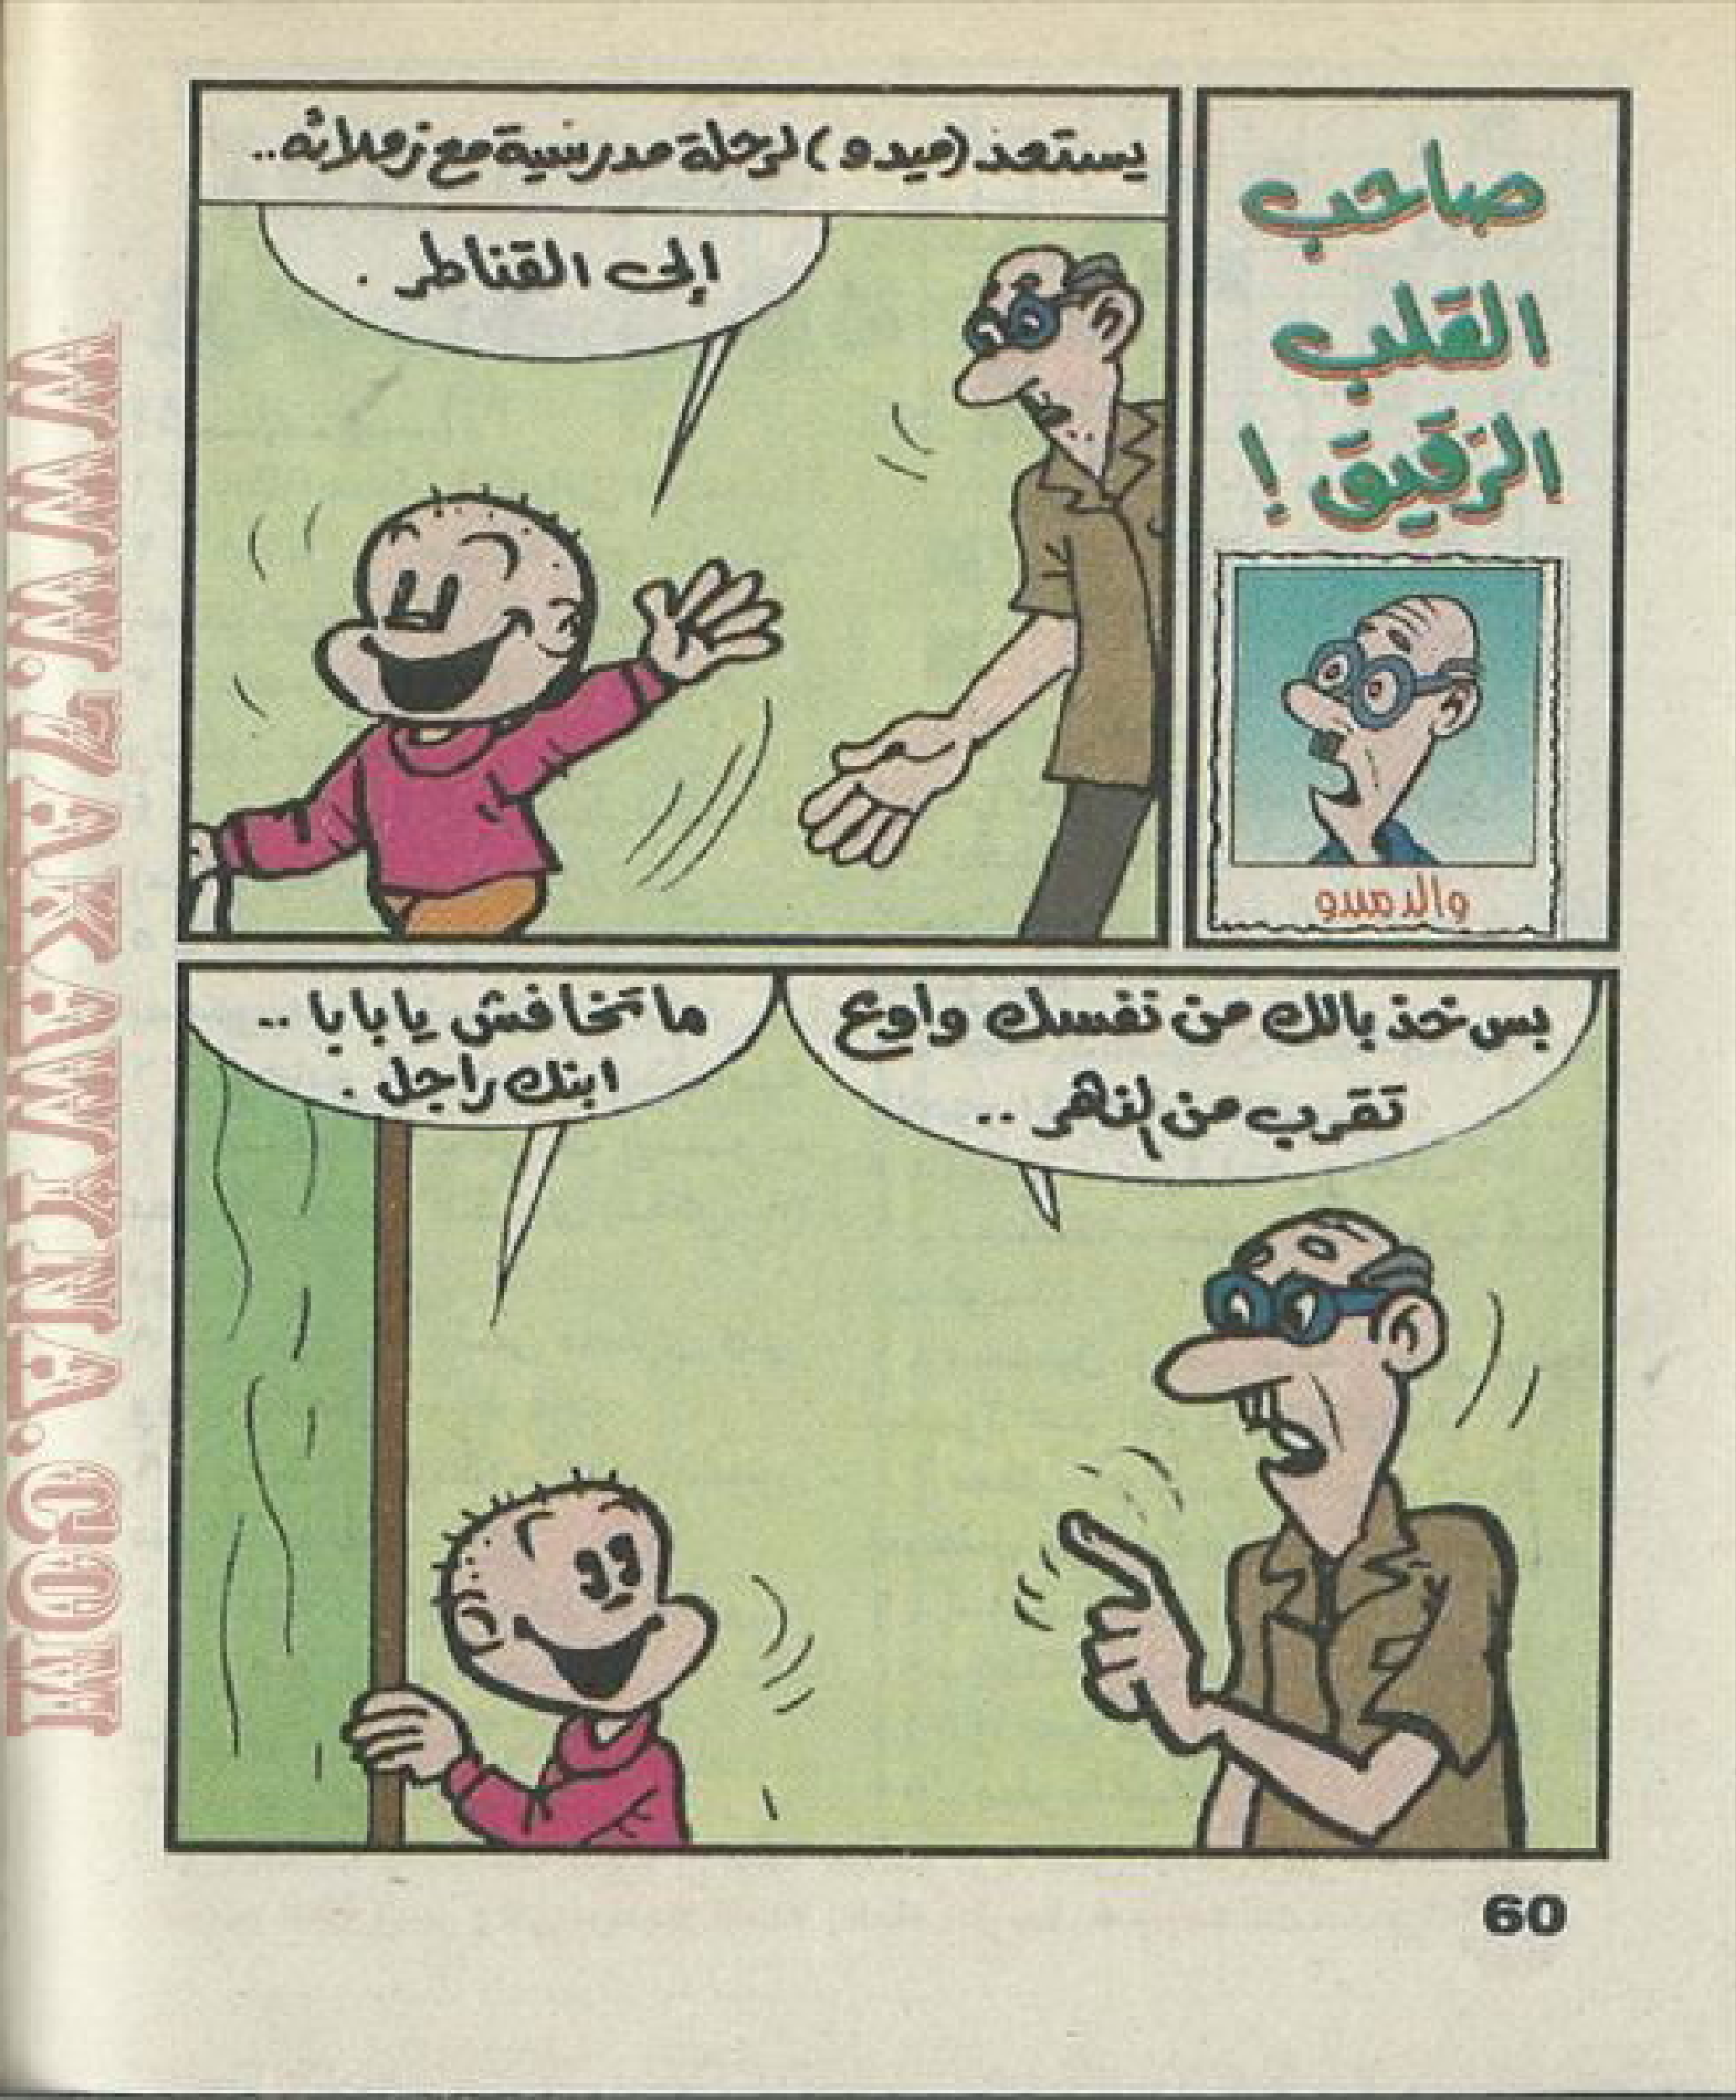 صاحب
القلب
الرقيق !
والد ميدو
يستعد (ميدو) لرحلة مدرسية مع زملائه..
إلى القناطر .
بس خد بالك من نفسك واوع
تقرب من النهر ..
ما تخافش يا بابا ..
ابنك راجل .
60
WWW.7AKAWINA.COM